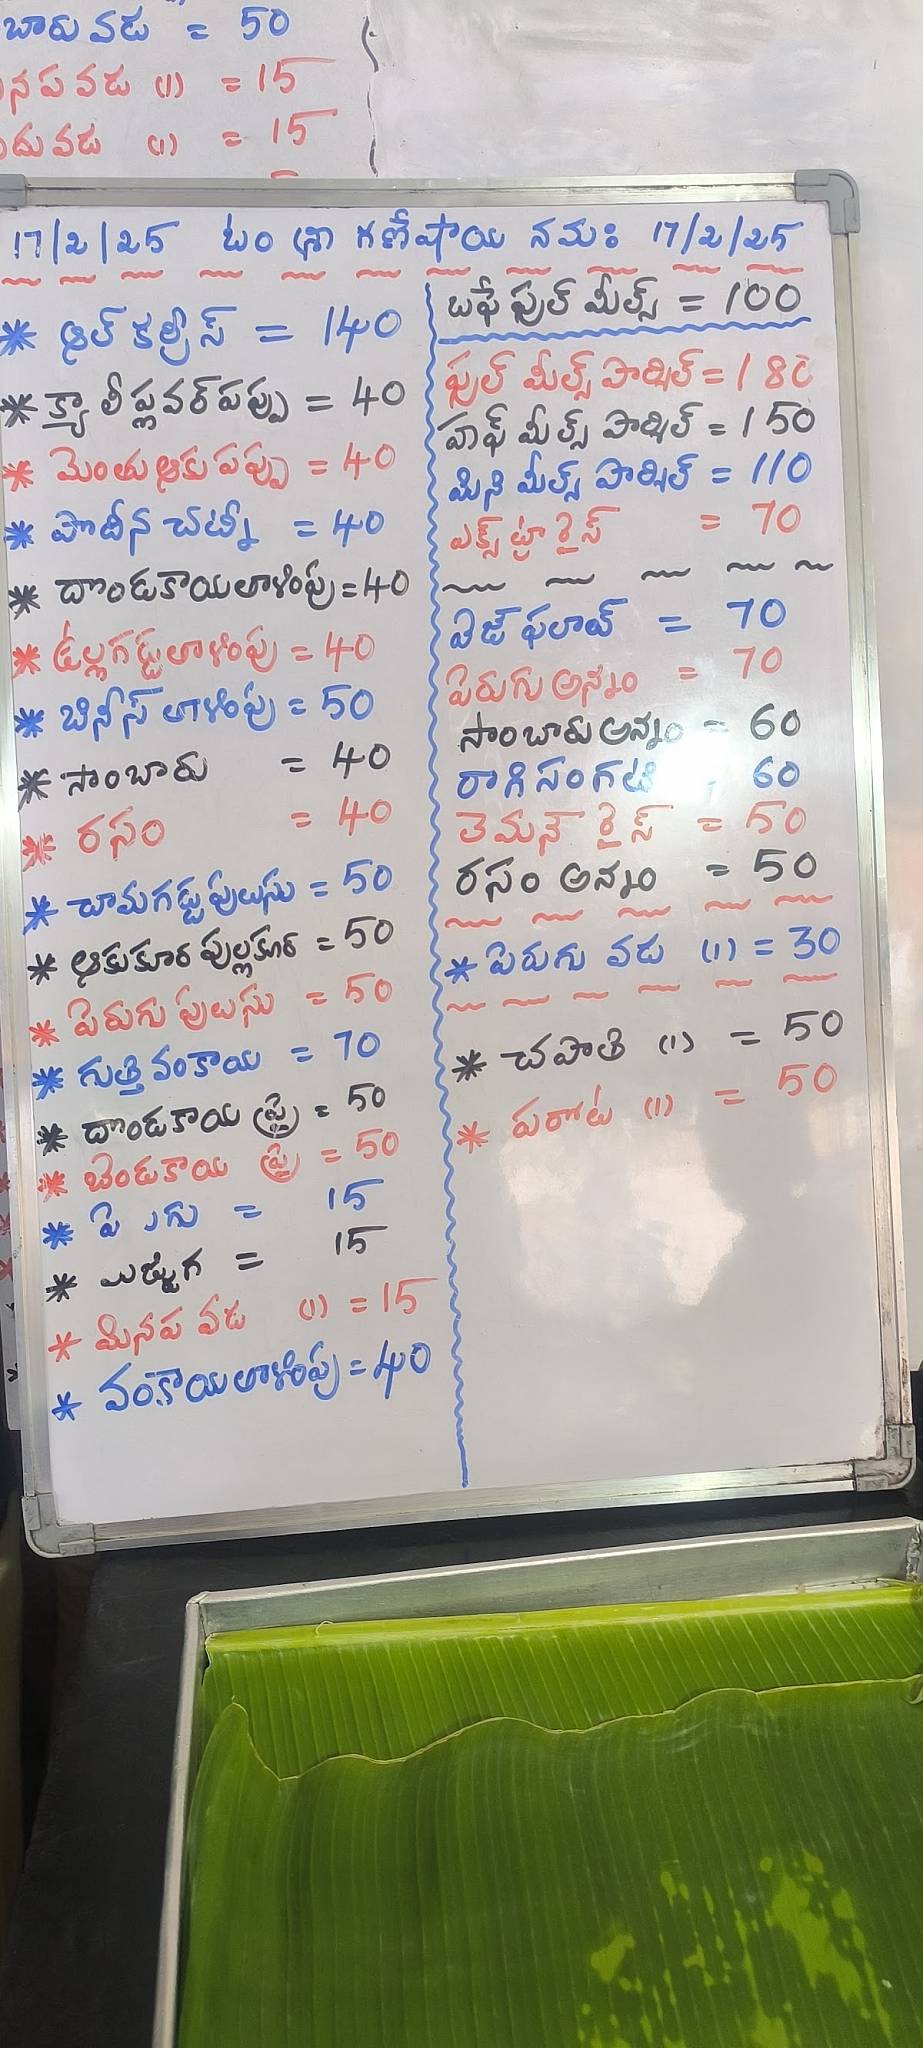 బారు వడ = 50
నప వడ (1) = 15
దు వడ (1) = 15
17/2/25 ఓం శ్రీ గణేషాయ నమః 17/2/25
* ఆల్ కర్రీస్ = 140
* క్యాలీఫ్లవర్ పప్పు = 40
* మెంతుఆకు పప్పు = 40
* పొదీన చట్నీ = 40
* దొండకాయ తాళింపు = 40
* ఉల్లగడ్డ తాళింపు = 40
* బినీస్ తాళింపు = 50
* సాంబారు = 40
* రసం = 40
* చామగడ్డ పులుసు = 50
* ఆకుకూర పుల్లకూర = 50
* పెరుగు పులుసు = 50
* గుత్తి వంకాయ = 70
* దొండకాయ ఫ్రై = 50
* బెండకాయ ఫ్రై = 50
* పె ుగు = 15
* మజ్జుగ = 15
* మినప వడ (1) = 15
* వంకాయ తాళింపు = 40
బఫే ఫుల్ మీల్స్ = 100
ఫుల్ మీల్స్ పార్శిల్ = 180
హాఫ్ మీల్స్ పార్శిల్ = 150
మిని మీల్స్ పార్శిల్ = 110
ఎక్స్ ట్రా రైస్ = 70
వెజ్ ఫలావ్ = 70
పెరుగు అన్నం = 70
సాంబారు అన్నం = 60
రాగి సంగటి = 60
లెమన్ రైస్ = 50
రసం అన్నం = 50
* పెరుగు వడ (1) = 30
* చపాతి (1) = 50
* పరోట (1) = 50